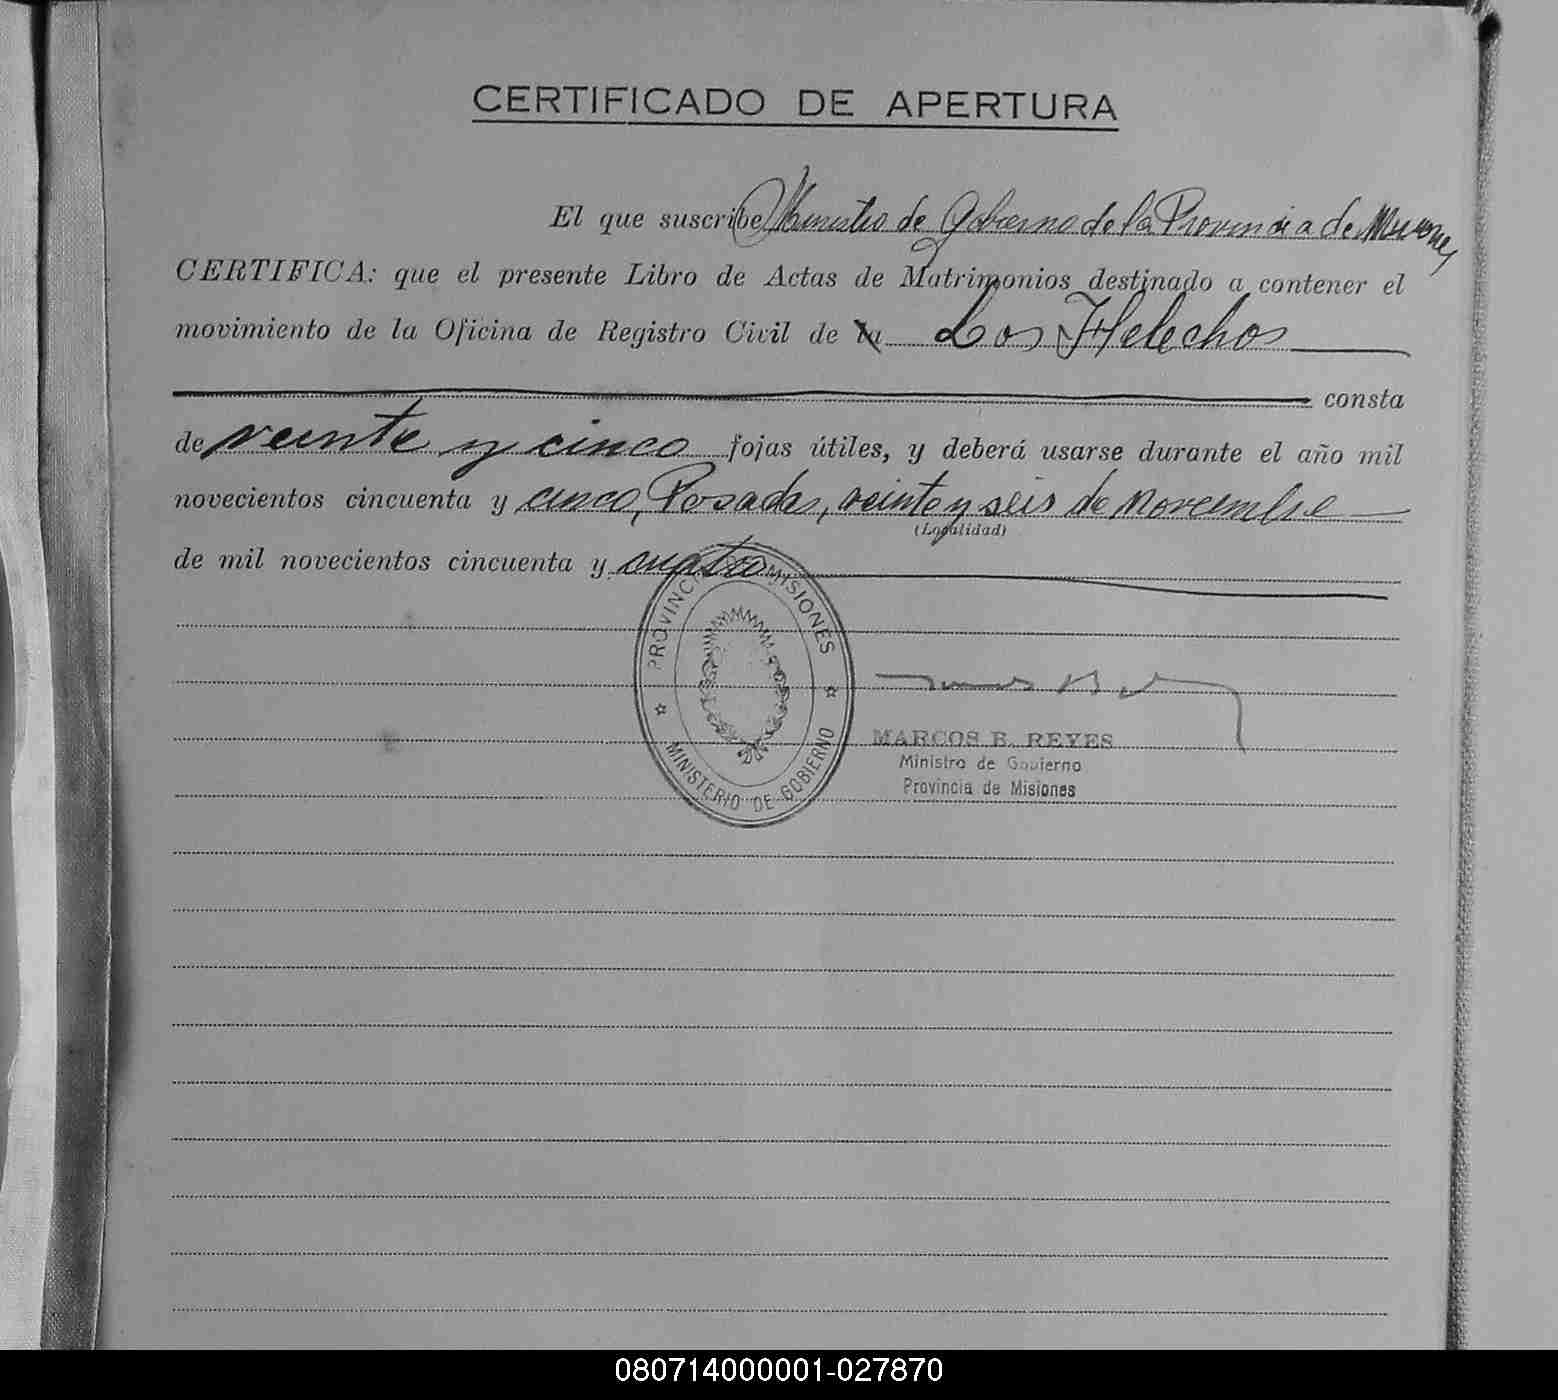 CERTIFICADO DE APERTURA
El que suscribe Ministro de Gobierno de la Provincia de Misiones
CERTIFICA: que el presente Libro de Actas de Matrimonios destinado a contener el
movimiento de la Oficina de Registro Civil de la Los Helechos
consta
de veinte y cinco fojas útiles, y deberá usarse durante el año mil
novecientos cincuenta y cinco, Posadas, veinte y seis de noviembre
(Localidad)
de mil novecientos cincuenta y cuatro
PROVINCIA DE MISIONES
MINISTERIO DE GOBIERNO
MARCOS B. REYES
Ministro de Gobierno
Provincia de Misiones
080714000001-027870